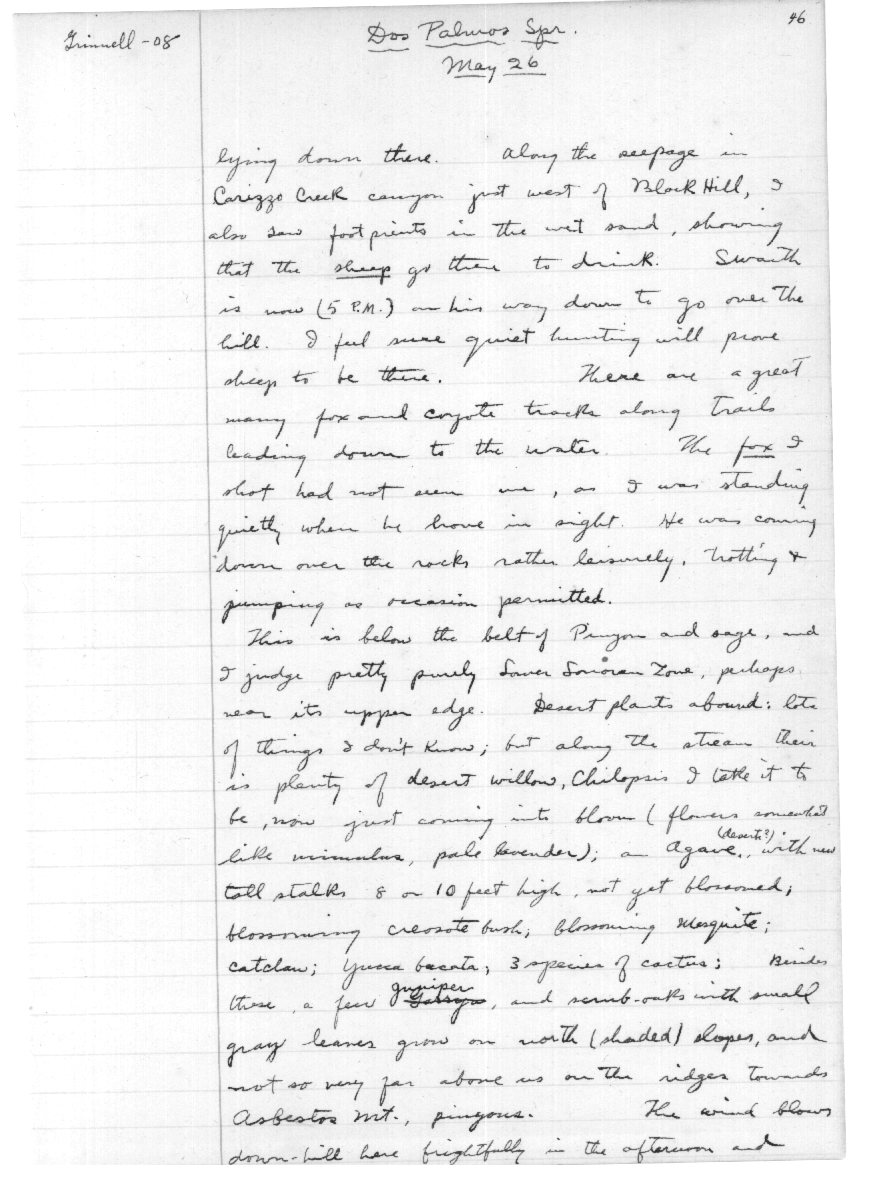 46
Grinnell-08
Dos Palmos Spr.
May 26
lying down there. Along the seepage in
Carizzo Creek canyon just west of Black Hill, I
also saw footprints in the wet sand, showing
that the sheep go there to drink. Swarth
is now (5 P.M.) on his way down to go over the
hill. I feel sure quiet hunting will prove
sheep to be there. There are a great
many fox and coyote tracks along trails
leading down to the water. The fox I
shot had not seen me, as I was standing
quietly when he hove in sight. He was coming
down over the rocks rather leisurely, trotting &
jumping as occasion permitted.
This is below the belt of Pinyon and sage, and
I judge pretty purely Lower Sonoran Zone, perhaps
near its upper edge. Desert plants abound: lots
of things I don't know; but along the stream their
is plenty of desert willow, Chilopsis I take it to
be, now just coming into bloom (flowers somewhat
like mimulus, pale lavender); an Agave (deserti?), with new
tall stalks 8 or 10 feet high, not yet blossomed;
blossoming creosote bush; blossoming mesquite;
catclaw; Yucca bacata; 3 species of cactus; Besides
these, a few juniper, and scrub-oaks with small
gray leaves grow on north (shaded) slopes, and
not so very far above us on the ridges towards
Asbestos Mt., pinyons. The wind blows
down-hill here frightfully in the afternoon and